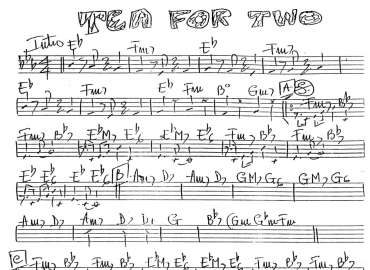 TEA FOR TWO
Intro E♭ Fm7 E♭ Fm7
E♭ Fm7 E♭ Fm B° Gm7 A Fm7 B♭7
Fm7 B♭7 E♭M7 E♭6 E♭M7 E♭6 Fm7 B♭7 Fm7 B♭7
E♭ E♭6 E♭ E♭6 B Am7 D7 Am7 D7 GM7 G6 GM7 G6
Am7 D7 Am7 D7 D7 G B♭7 (Gm G♭m Fm
C Fm7 B♭7 Fm7 B♭7 E♭M7 E♭6 E♭M7 E♭6 Fm7 B♭7 Fm7 B♭7